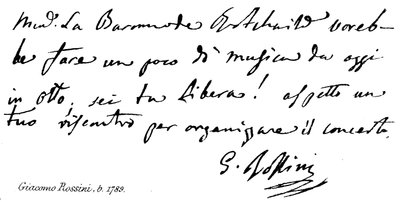 Mad. La Baronne de Rotchaild voreb-
be fare un poco di musica da oggi
in otto, sei tu libera! aspetto un
tuo riscontro per organizzare il concerto
G. Rossini
Giacomo Rossini. b. 1789.